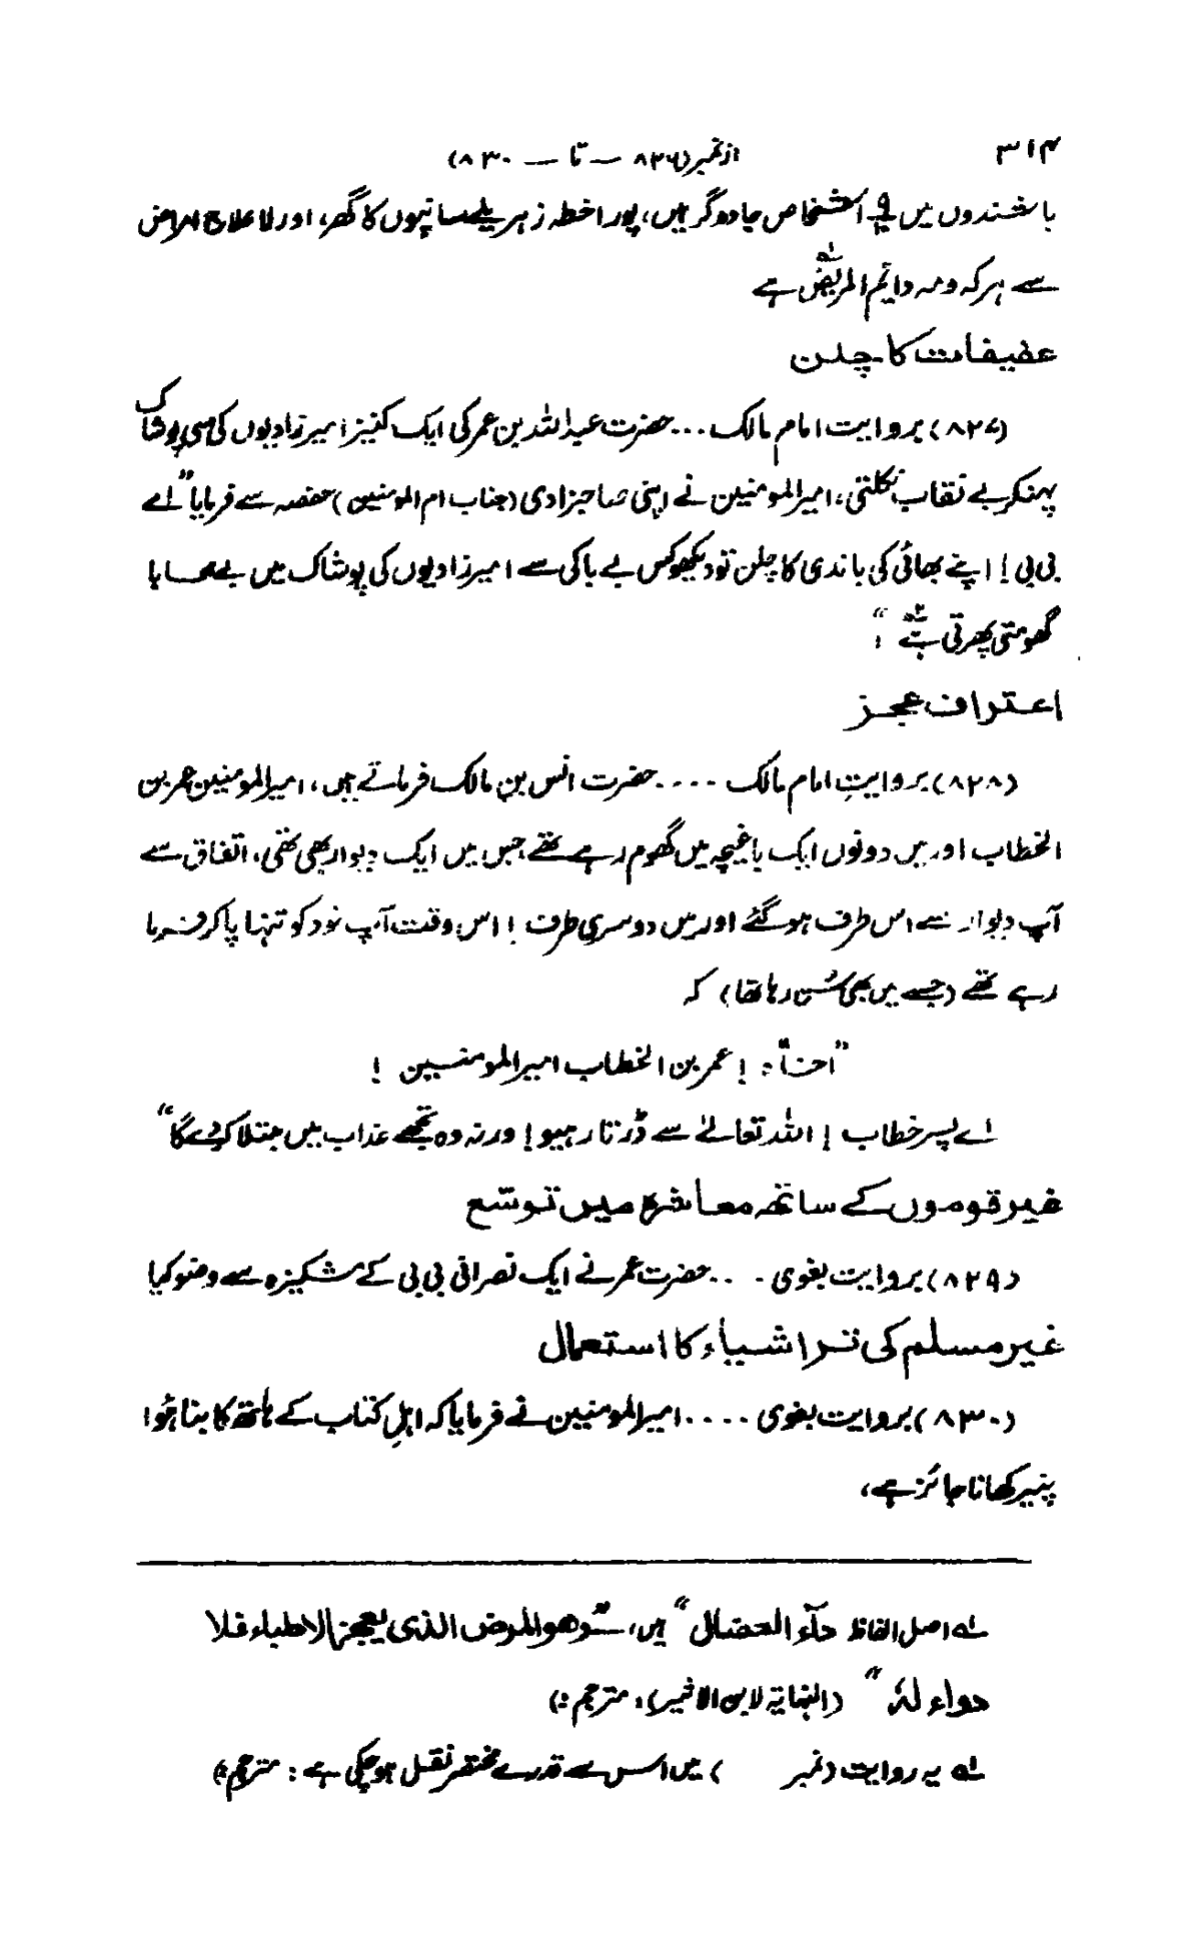 ۳۱۴ از نمبر (۸۲۶ — تا — ۸۳۰)
باشندوں میں ۹/۱۰ اشخاص جادوگر ہیں، پورا خطہ زہریلے سانپوں کا گھر، اور لا علاج امراض
سے ہر کہ ومہ دائم المریض ہے
عفیفات کا چلن
(۸۲۷) بروایت امام مالک ... حضرت عبداللہ بن عمر کی ایک کنیز امیر زادیوں کی سی پوشاک
پہنکر بے نقاب نکلتی، امیر المومنین نے اپنی صاحبزادی (جناب ام المومنین) حفصہ سے فرمایا "اے
بی بی! اپنے بھائی کی باندی کا چلن تو دیکھو کس بے باکی سے امیر زادیوں کی پوشاک میں بے محابا
گھومتی پھرتی ہے"؛
اعتراف عجز
(۸۲۸) بروایتِ امام مالک .... حضرت انس بن مالک فرماتے ہیں، امیر المومنین عمر بن
الخطاب اور میں دونوں ایک باغیچہ میں گھوم رہے تھے جس میں ایک دیوار بھی تھی، اتفاق سے
آپ دیوار سے اس طرف ہو گئے اور میں دوسری طرف! اس وقت آپ خود کو تنہا پا کر فرما
رہے تھے (جسے میں بھی سُن رہا تھا) کہ
! عمر بن الخطاب امیر المومنین!
اے پسر خطاب! اللہ تعالےٰ سے ڈرتا رہیو! ورنہ وہ تجھے عذاب میں مبتلا کر دے گا"
غیر قوموں کے ساتھ معاشرہ میں توسّع
(۸۲۹) بروایت بغوی ... حضرت عمر نے ایک نصرانی بی بی کے مشکیزہ سے وضو کیا
غیر مسلم کی تر اشیاء کا استعمال
(۸۳۰) بروایت بغوی .... امیر المومنین نے فرمایا کہ اہلِ کتاب کے ہاتھ کا بنا ہُوا
پنیر کھانا جائز ہے،
لہ اصل الفاظ داء العضال" ہیں، وھو المرض الذی یعجز الاطباء فلا
دواء لہٗ" (النہایۃ لابن الاثیر)، مترجم:)
لہ یہ روایت (نمبر ) میں اس سے قدرے مختصر نقل ہو چکی ہے: مترجم:)